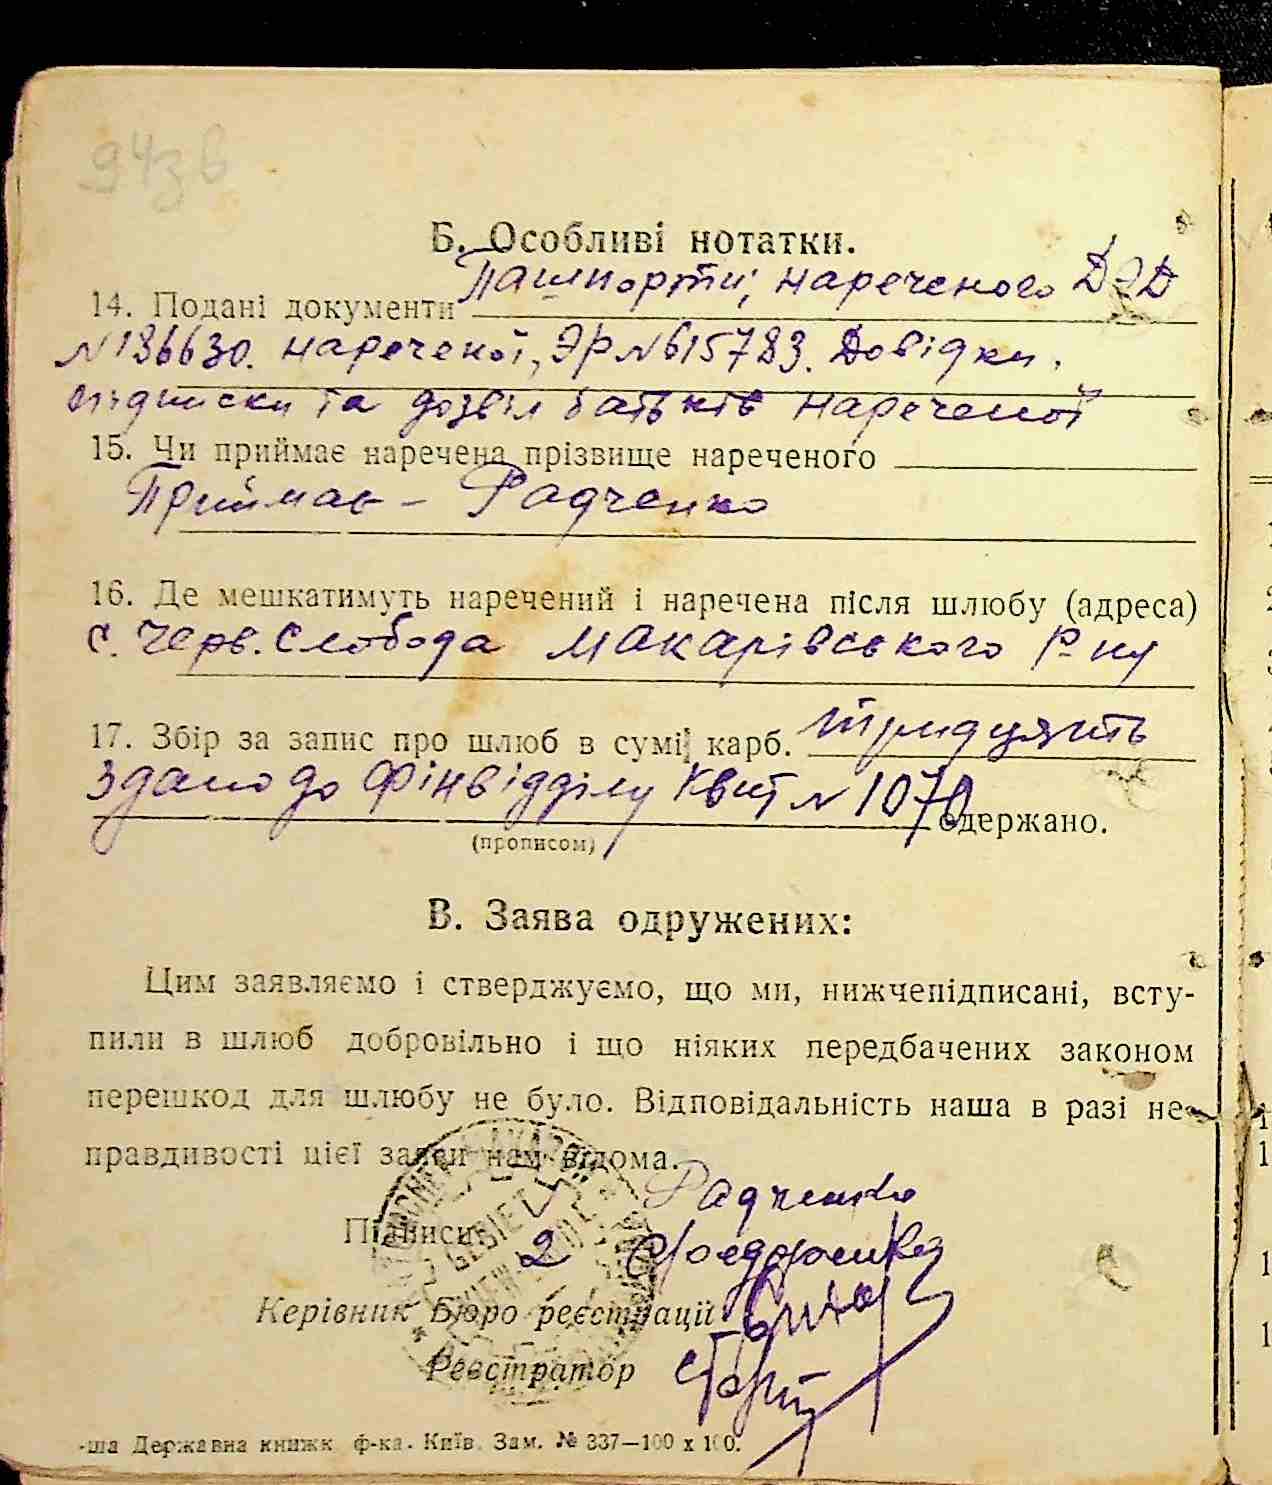 943в
Б. Особливі нотатки.
14. Подані документи Пашпорти, нареченого
№136630. нареченої, ЭР №615783. Довідки,
підписки та дозвіл батьків нареченої
15. Чи приймає наречена прізвище нареченого
Приймає – Радченко
16. Де мешкатимуть наречений і наречена після шлюбу (адреса)
с. Черв. Слобода Макарівського р-ну
17. Збір за запис про шлюб в сумі карб. тридцять
здано до Фінвідділу Квит № 1070 одержано.
(прописом)
В. Заява одружених:
Цим заявляємо і стверджуємо, що ми, нижчепідписані, всту-
пили в шлюб добровільно і що ніяких передбачених законом
перешкод для шлюбу не було. Відповідальність наша в разі не-
правдивості цієї заяви нам відома.
Радченко
Підписи: 2
Керівник Бюро реєстрації
Реєстратор
-ша Державна книжк. ф-ка. Київ. Зам. № 337—100 х 100.